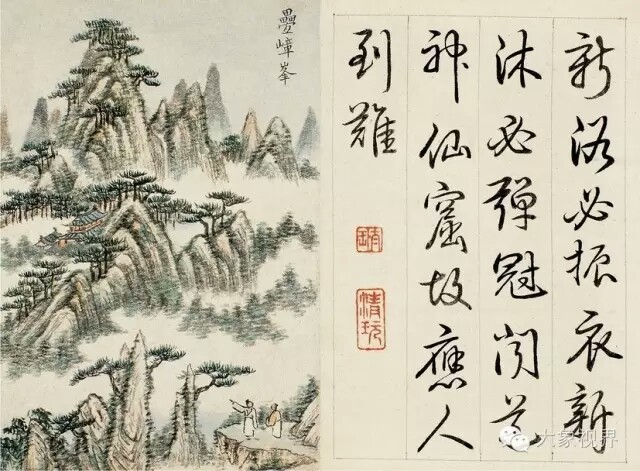 疊嶂峯
新浴必振衣新
沐必彈冠聞道
神仙窟故應人
到難
清玩
大象视界